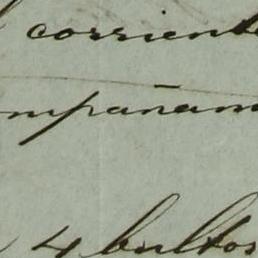 corriente
mpañam
4 bultos